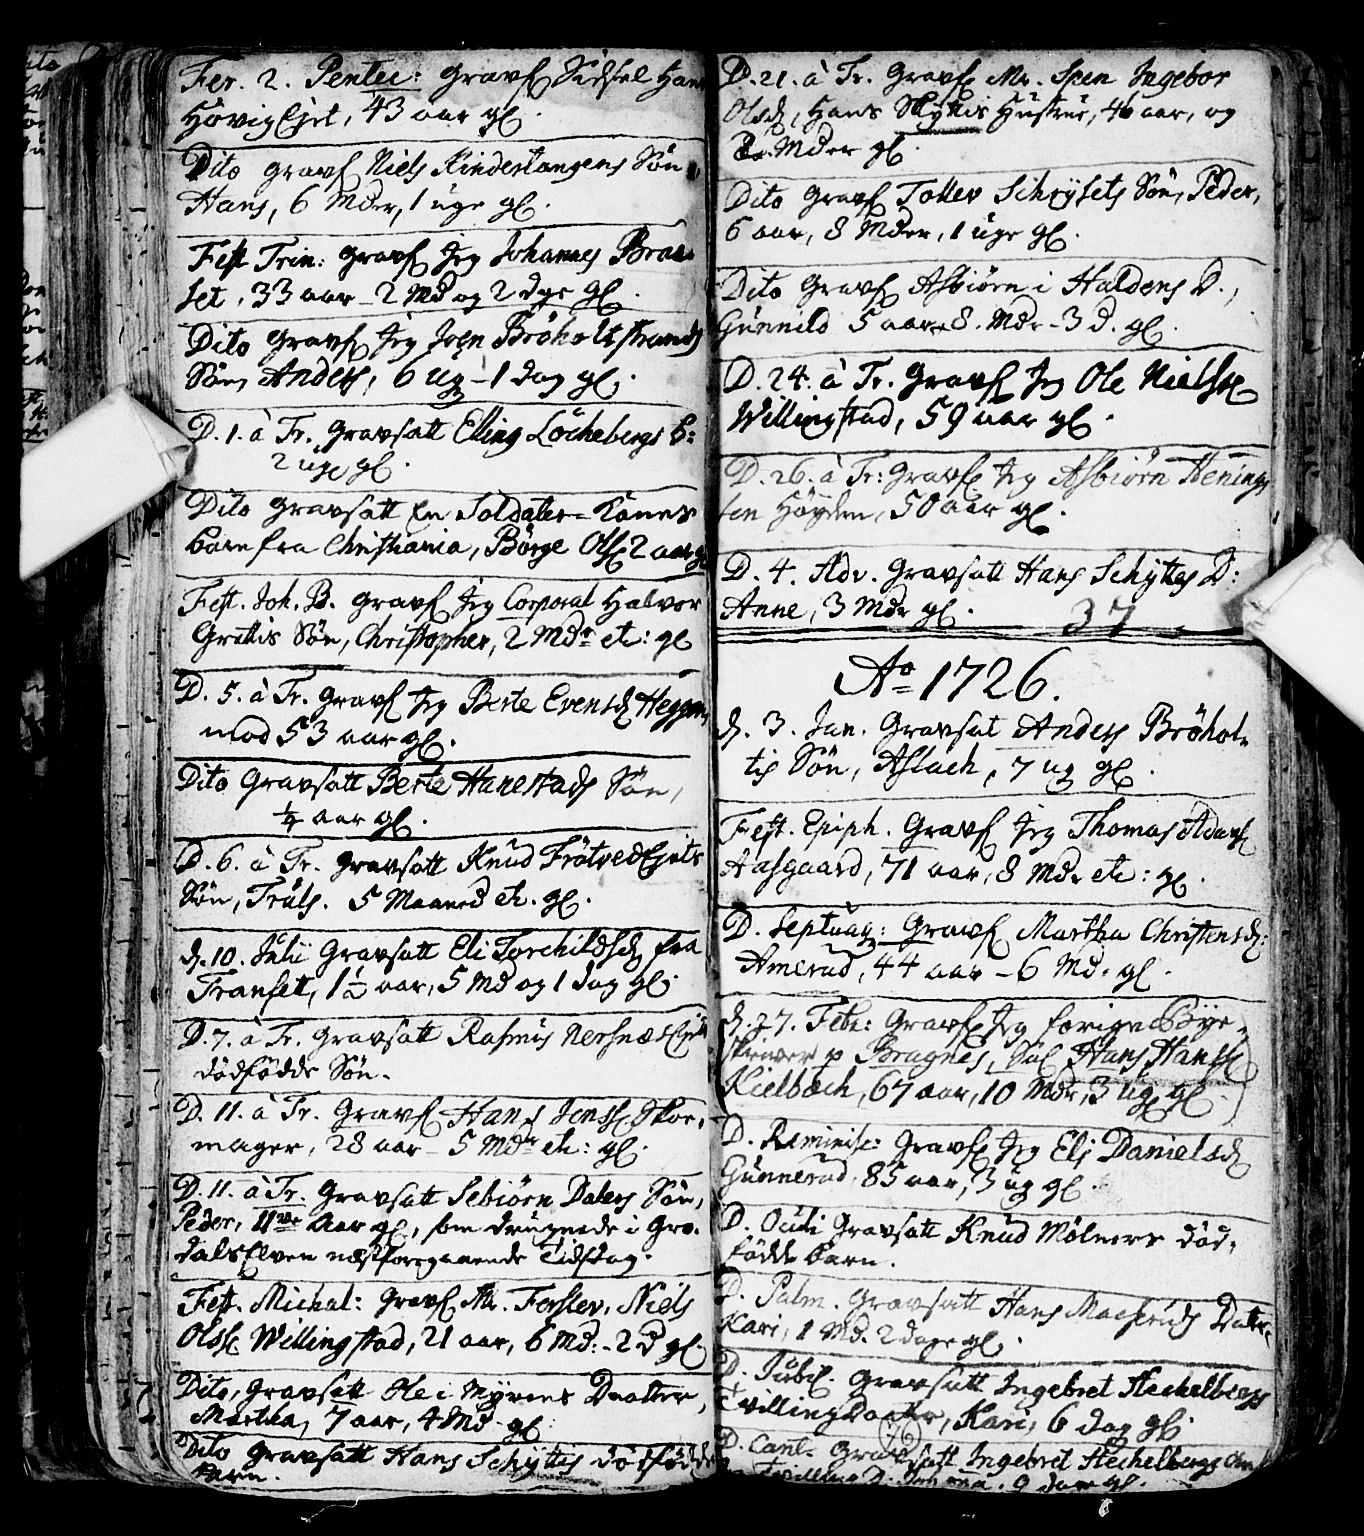 Fer. 2. Pentec: Gravs. Sidsel Hans
Høvig Ejet, 43 aar gl.
Dito Gravs. Niels Kinderstangens Søn,
Hans, 6 Mdr, 1 uge gl.
Fest Trin: Gravs. Jeg Johannes Braa-
set, 33 aar - 2 Md og 2 dge gl.
Dito Gravs. Jeg Joen Bröholtstrands
Søn, Anders, 6 ug - 1 dag gl.
D. 1. à Tr. Gravsatt Elling Löchebergs B:
2 uge gl.
Dito Gravsatt En Soldater-Kones
barn fra Christiania, Börge Ols. 2 aar gl
Fest. Joh. B. Gravs. Jeg Corporal Halvor
Grettis Søn, Christopher, 2 Mdr etc: gl
D. 5. à Tr. Gravs. Jeg Berte Evensd. Heggen
53 aar gl.
Dito Gravsatt Berte Hanestads Søn,
1/4 aar gl.
D. 6. à Tr. Gravsatt Knud Frötved Ejets
Søn, Truls. 5 Maaned etc. gl.
d. 10. Julii Gravsatt Eli Torchildsd. fra
Franset, 1 1/2 aar, 5 Md og 1 dag gl.
D. 7. à Tr. Gravsatt Rasmus Nersnæs Ejets
dödfödde Søn.
D. 11. à Tr. Gravs. Hans Jenss. Skoe-
mager, 28 aar - 5 Mdr etc: gl.
D. 11. à Tr. Gravsatt Sebiörn Dalens Søn,
Peder, 11 Aar gl, som druknede i Gro-
dals Elven næstforegaaende Tidsdag.
Fest. Michal: Gravs. Mr. Forslev, Niels
Olss. Willingstad, 21 aar, 6 Md. - 2 d gl.
Dito, Gravsatt Ole i Myrens Daatter,
Martha, 7 aar, 4 Md gl.
Dito Gravsatt Hans Schyttis dödfödde
barn.
D. 21. à Tr. Gravs. Mr. Spen Ingebor
Olsd, Hans Skyttis Hustrue, 46 aar, og
Mder gl.
Dito Gravs. Tollev Schöysets Søn, Peder,
6 aar, 8 Mder, 1 uge gl.
Dito Gravs. Asbiörn i Haldens D.,
Gunnild 5 aar - 8. Mdr - 3 d. gl.
D. 24. à Tr. Gravs. Jeg Ole Nielss.
Willingstad, 59 aar gl.
D. 26. à Tr: Gravs. Jeg Asbiörn Henings
sen Höyden, 50 aar gl.
D. 4. Adv. Gravsatt Hans Schyttes D:
Anne, 3 Mdr gl.
37
Ao 1726.
d. 3. Jan. Gravsat Anders Bröhol-
tis Søn, Aslach, 7 ug gl.
Fest. Epiph. Gravs. Jeg Thomas Adams.
Aasgaard, 71 aar, 8 Mdr etc: gl.
D. Septuag: Gravs. Martha Christensd:
Amerud, 44 aar - 6 Md. gl.
d. 27. Febr: Gravs. Jeg forige Bye-
skriver p Bragnes, Sal Hans Hanss.
Kielbach, 67 aar, 10 Mdr, 3 ug gl.
D. Reminisc: Gravs. Jeg Eli Danielsd.
Gunnerud, 85 aar, 3 ug gl.
D. Oculi Gravsatt Knud Mölners död-
födde barn.
D. Palm. Gravsatt Hans Dater,
Kari, 1 Md. 2 dage gl.
D. Jubil. Gravsatt Ingebret Stechelbergs
Tvilling Daatter, Kari, 6 dag gl.
76
D. Cant. Gravsatt Ingebret Stechelbergs
Tvilling D. 9 dage gl.